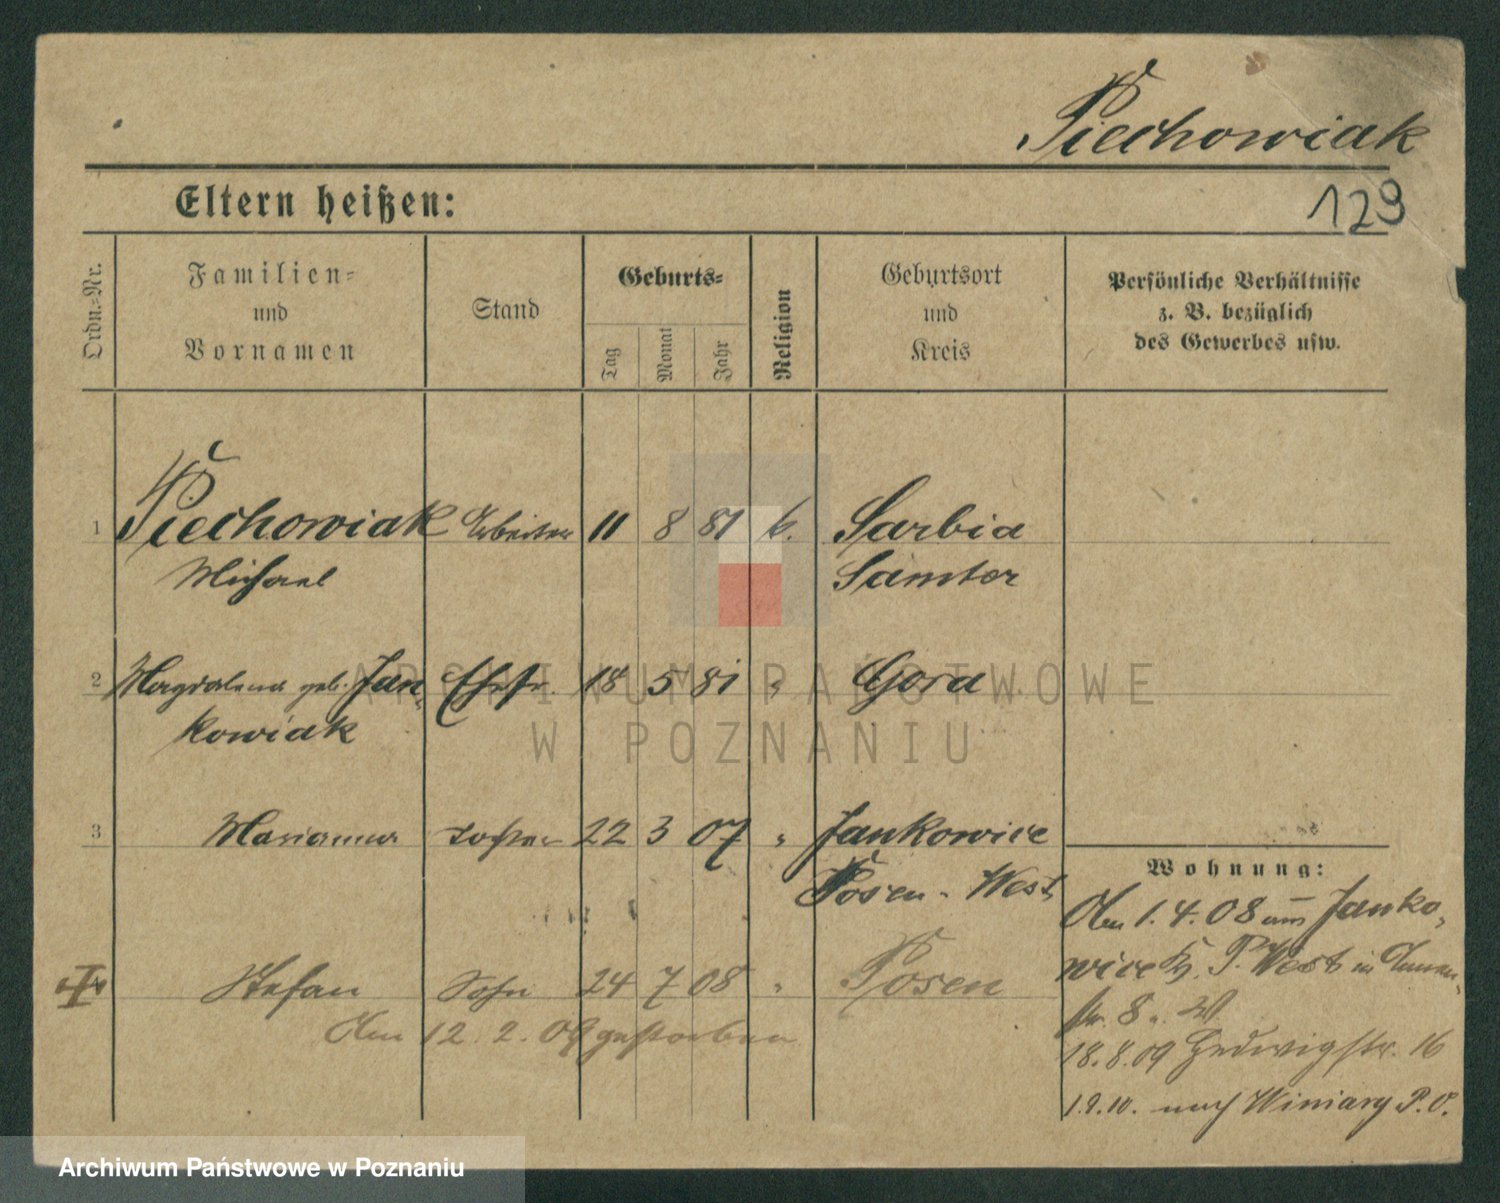 Piechowiak
129
Eltern heißen:
Ordn.-Nr.
Familien-
und
Vornamen
Stand
Geburts-
Tag
Monat
Jahr
Religion
Geburtsort
und
Kreis
Persönliche Verhältnisse
z. B. bezüglich
des Gewerbes usw.
1 Piechowiak Arbeiter 11 8 81 k. Sarbia
Michael Samter
2 Magdalena geb. Jan- Ehefr. 18 5 81 " Gora
kowiak
3 Marianna Tochter 22 3 07 " Jankowice
Posen-West
Stefan Sohn 24 7 08 " Posen
Am 12. 2. 09 gestorben
Wohnung:
Am 1.4.08 aus Janko-
wice Kr. P. West in
str. 8
18.8.09 Hedwigstr. 16
1.9.10. nach Winiary P.O.
ARCHIWUM PAŃSTWOWE
W POZNANIU
Archiwum Państwowe w Poznaniu